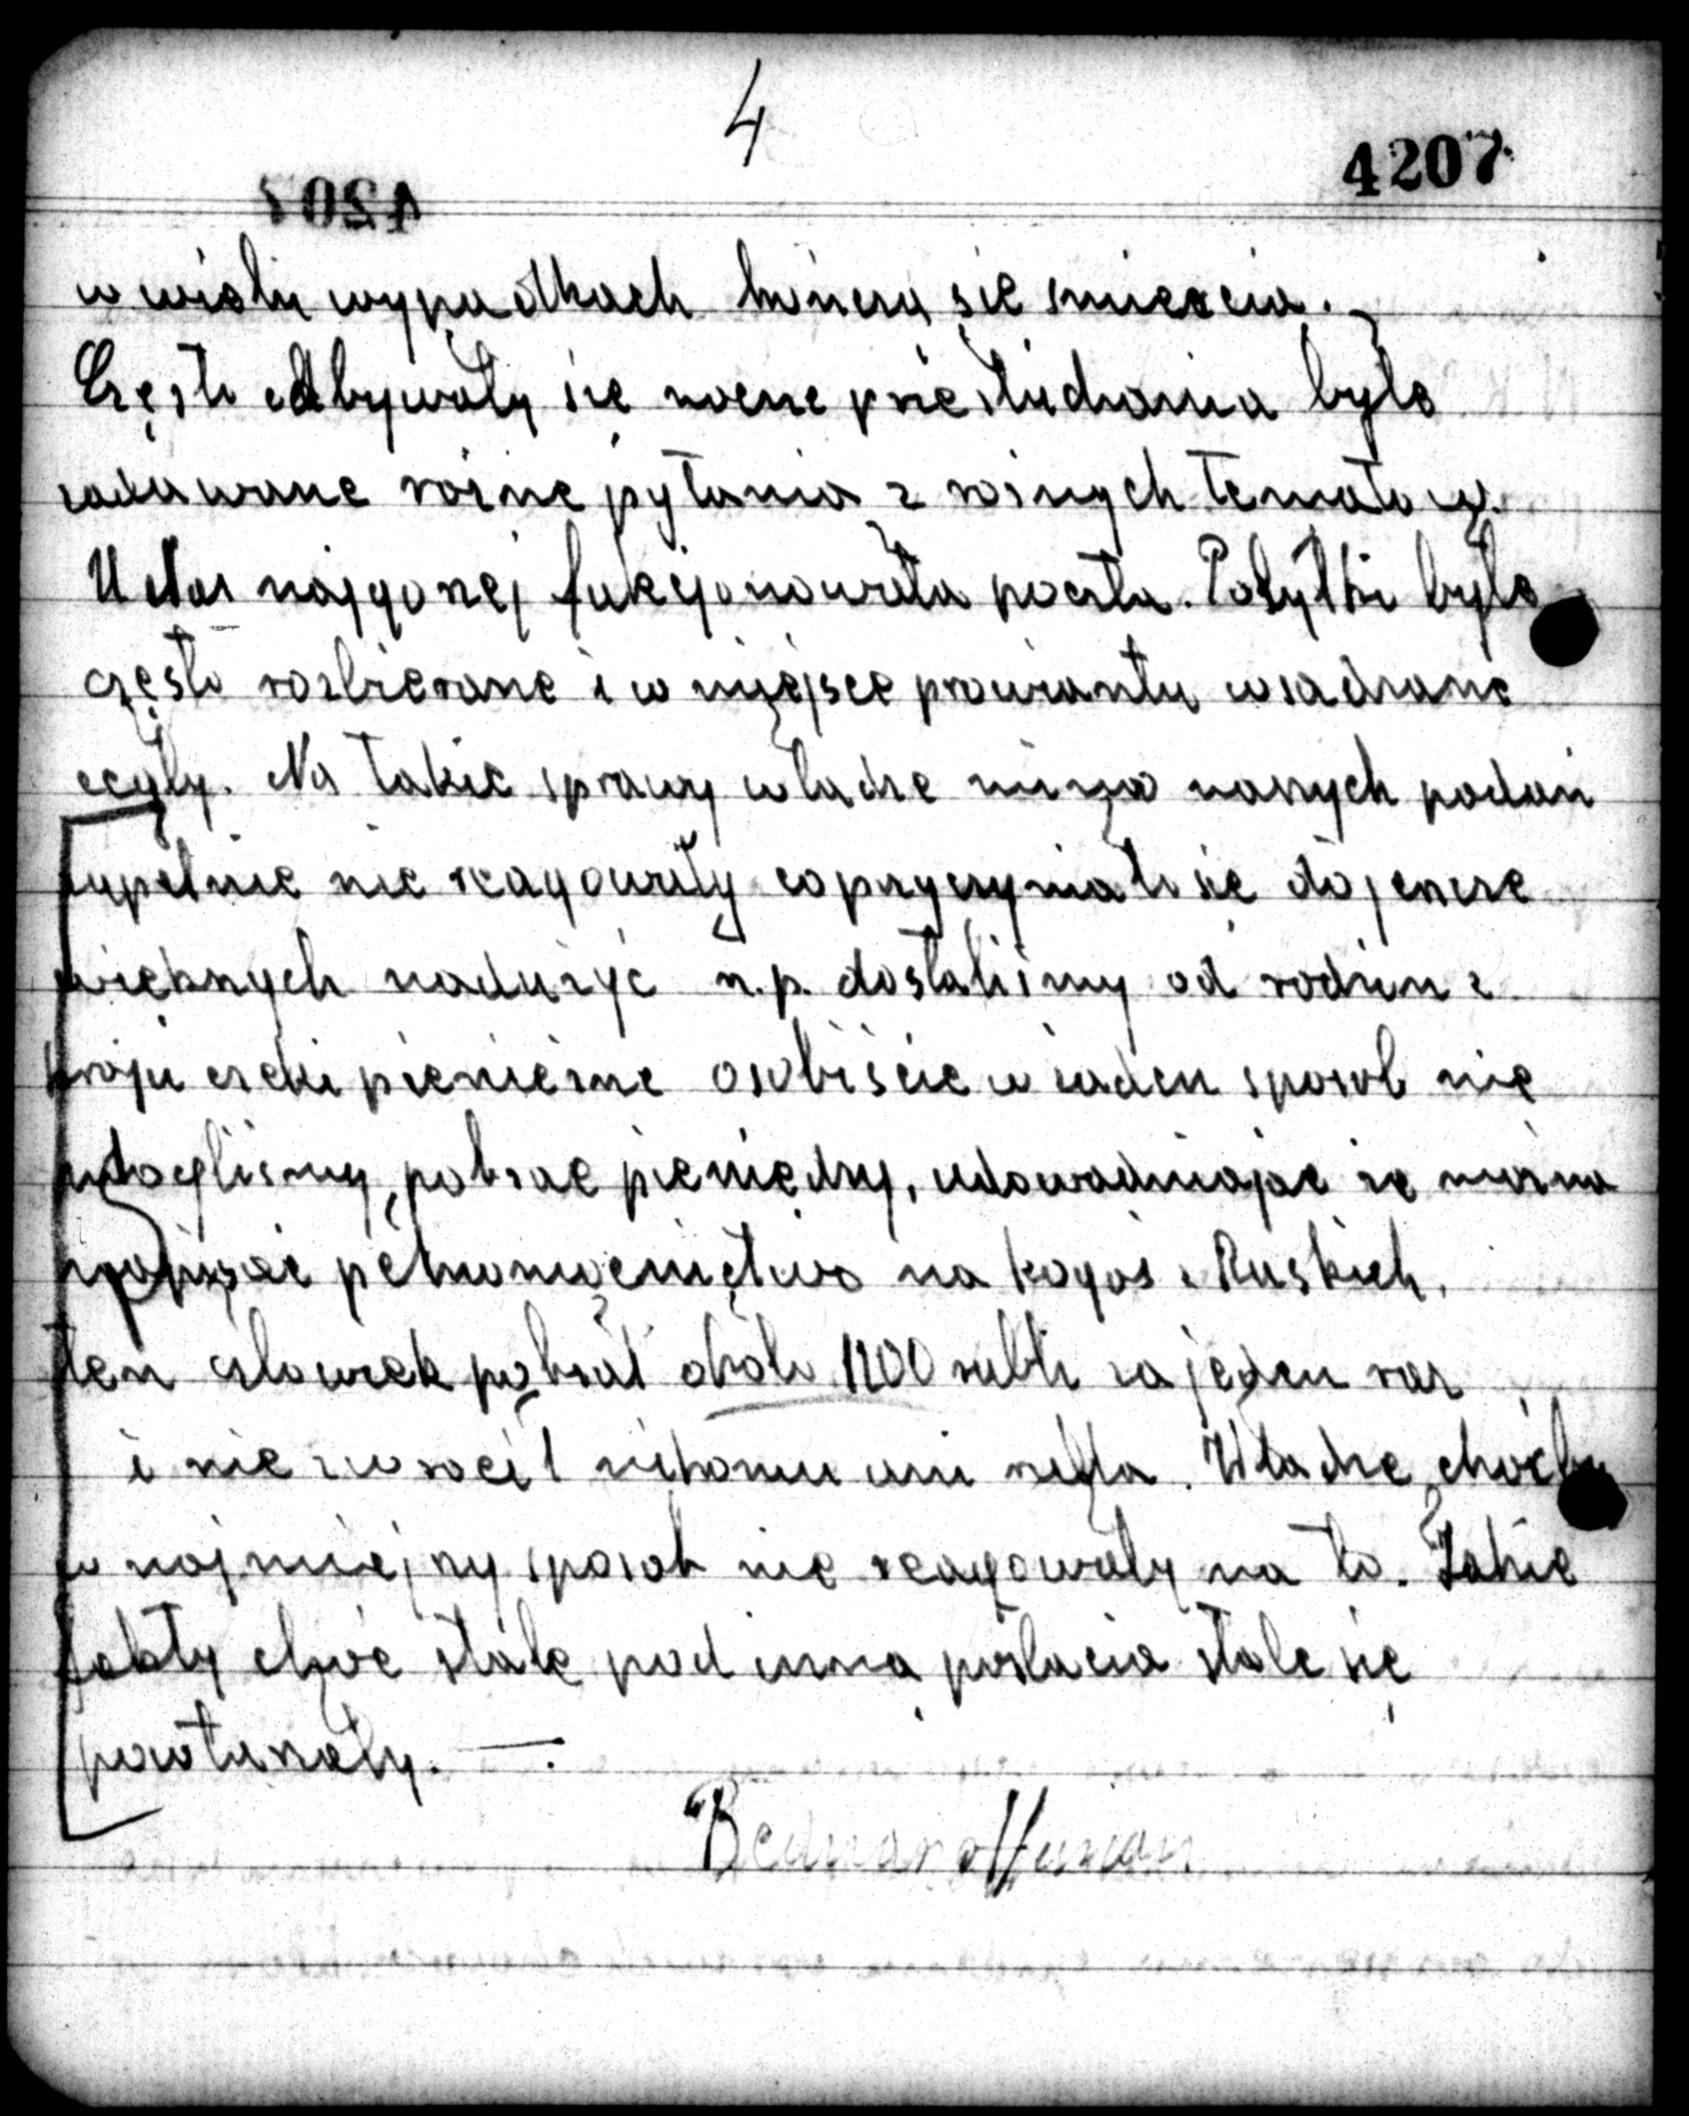 4
4207
w wielu wypadkach kończą się śmiercią.
Często odbywały się nocne przesłuchania było
zadawane różne pytania z różnych tematów.
U Nas najgorzej fukcjonowała poczta. Posyłki było
często rozbierane i w miejsce prowiantu wsadzane
cegły. Na takie sprawy władze mimo naszych podań
zupełnie nie reagowały co przyczyniało się do jeszcze
większych nadużyć n.p. dostaliśmy od rodzin z
kraju czeki pieniężne osobiście w żaden sposob nie
mogliśmy pobrać pieniędzy, udowadniając że można
napisać pełnomocnictwo na kogoś z Ruskich,
ten człowiek pobrał około 1200 rubli za jeden raz
i nie zwrócił nikomu ani rubla. Władze choćby
w najmniejszy sposob nie reagowały na to. Takie
fakty choć stale pod inną postacią stale się
powtarzały. —.
Bednarz Marian